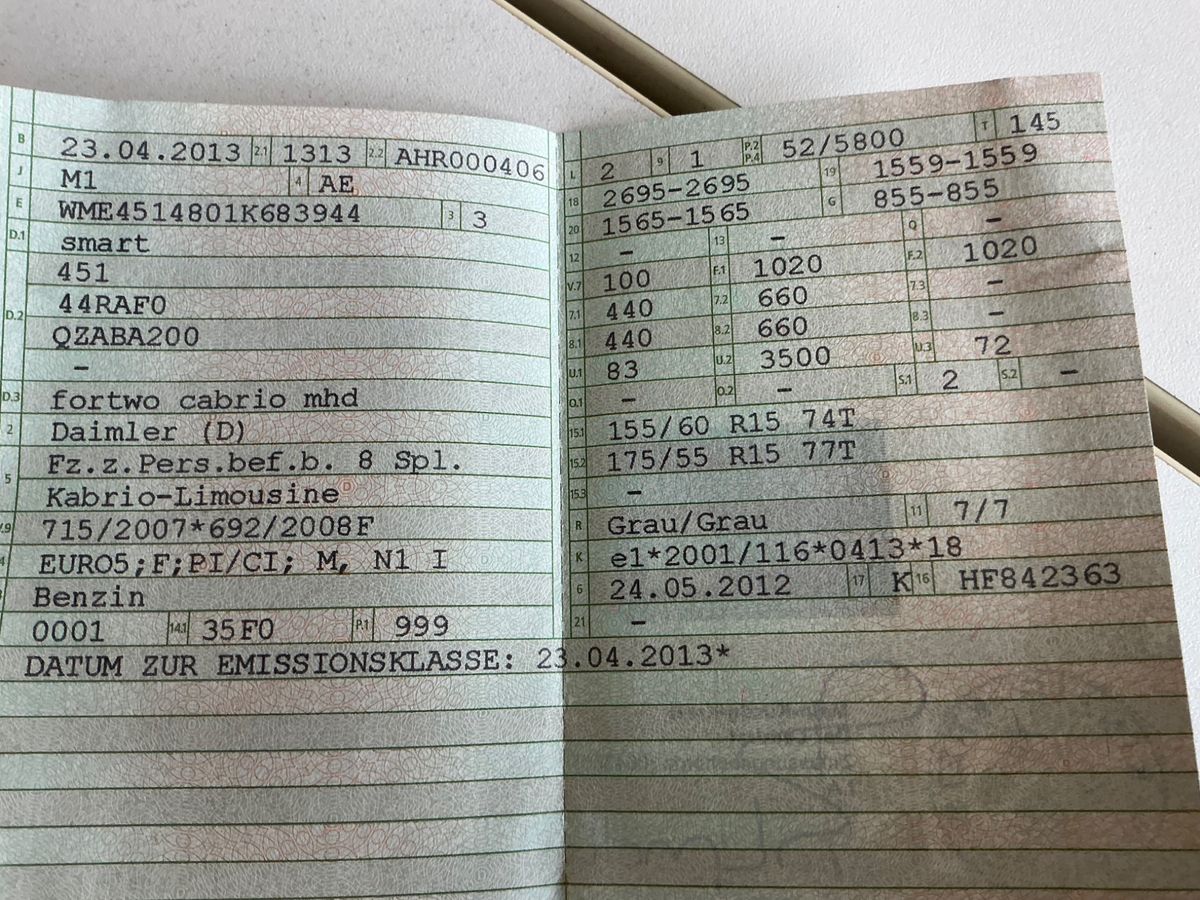 B 23.04.2013 2.1 1313 2.2 AHR000406
J M1 4 AE
E WME4514801K683944 3 3
D.1 smart
451
D.2 44RAF0
QZABA200
–
D.3 fortwo cabrio mhd
2 Daimler (D)
5 Fz.z.Pers.bef.b. 8 Spl.
Kabrio-Limousine
V.9 715/2007*692/2008F
EURO5;F;PI/CI; M, N1 I
Benzin
0001 14.1 35F0 P.1 999
DATUM ZUR EMISSIONSKLASSE: 23.04.2013*
L 2 9 1 P.2 P.4 52/5800 T 145
18 2695-2695 19 1559-1559
20 1565-1565 G 855-855
12 – 13 – Q –
V.7 100 F.1 1020 F.2 1020
7.1 440 7.2 660 7.3 –
8.1 440 8.2 660 8.3 –
U.1 83 U.2 3500 U.3 72
O.1 – O.2 – S.1 2 S.2 –
15.1 155/60 R15 74T
15.2 175/55 R15 77T
15.3 –
R Grau/Grau 11 7/7
K e1*2001/116*0413*18
6 24.05.2012 17 K 16 HF842363
21 –